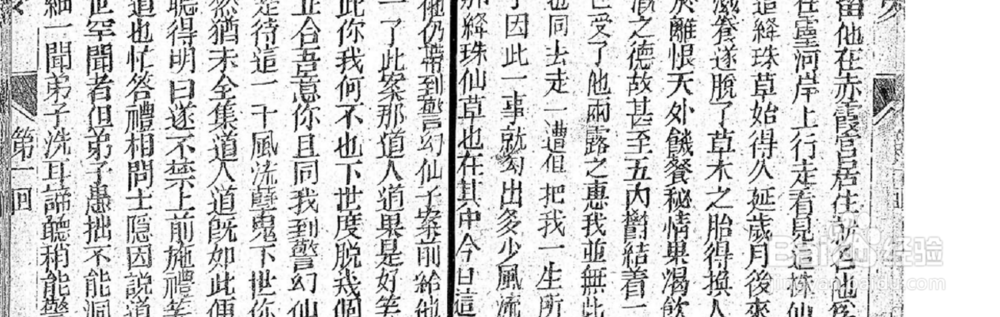 留他在赤霞宮居住就名他爲
在靈河岸上行走看見這株仙
這絳珠草始得久延歲月後來
滋養遂脫了草木之胎得換人
於離恨天外饑餐秘情果渴飲
溉之德故甚至五內鬱結着一
也受了他雨露之惠我並無此
也同去走一遭但把我一生所
了因此一事就勾出多少風流
那絳珠仙草也在其中今日這
他仍帶到警幻仙子案前給他
一了此案那道人道果是好笑
此你我何不也下世度脫幾個
正合吾意你且同我到警幻仙
走待這一干風流孽鬼下世你
然猶未全集道人道既如此便
聽得明白遂不禁上前施禮笑
道也忙答禮相問士隱因說道
世罕聞者但弟子愚拙不能洞
細一聞弟子洗耳諦聽稍能警
第一回
Baidu经验
jingyan.baidu.com